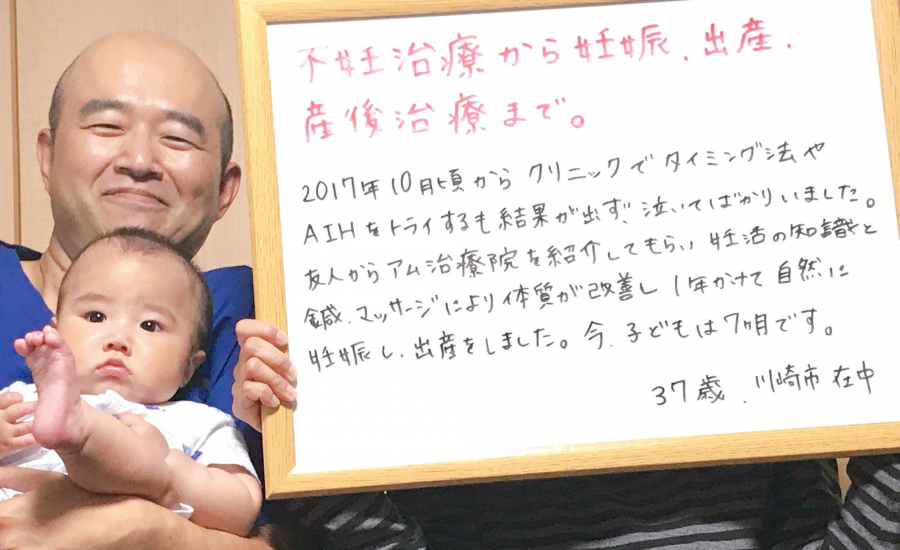 不妊治療から妊娠、出産、
産後治療まで。
2017年10月頃から クリニックで タイミング法や
AIHをトライするも結果が出ず、泣いてばかりいました。
友人からアム治療院を紹介してもらい 妊活の知識と
鍼、マッサージにより体質が改善し 1年かけて 自然に
妊娠し、出産をしました。今、子どもは7ヶ月です。
37歳、川崎市 在中